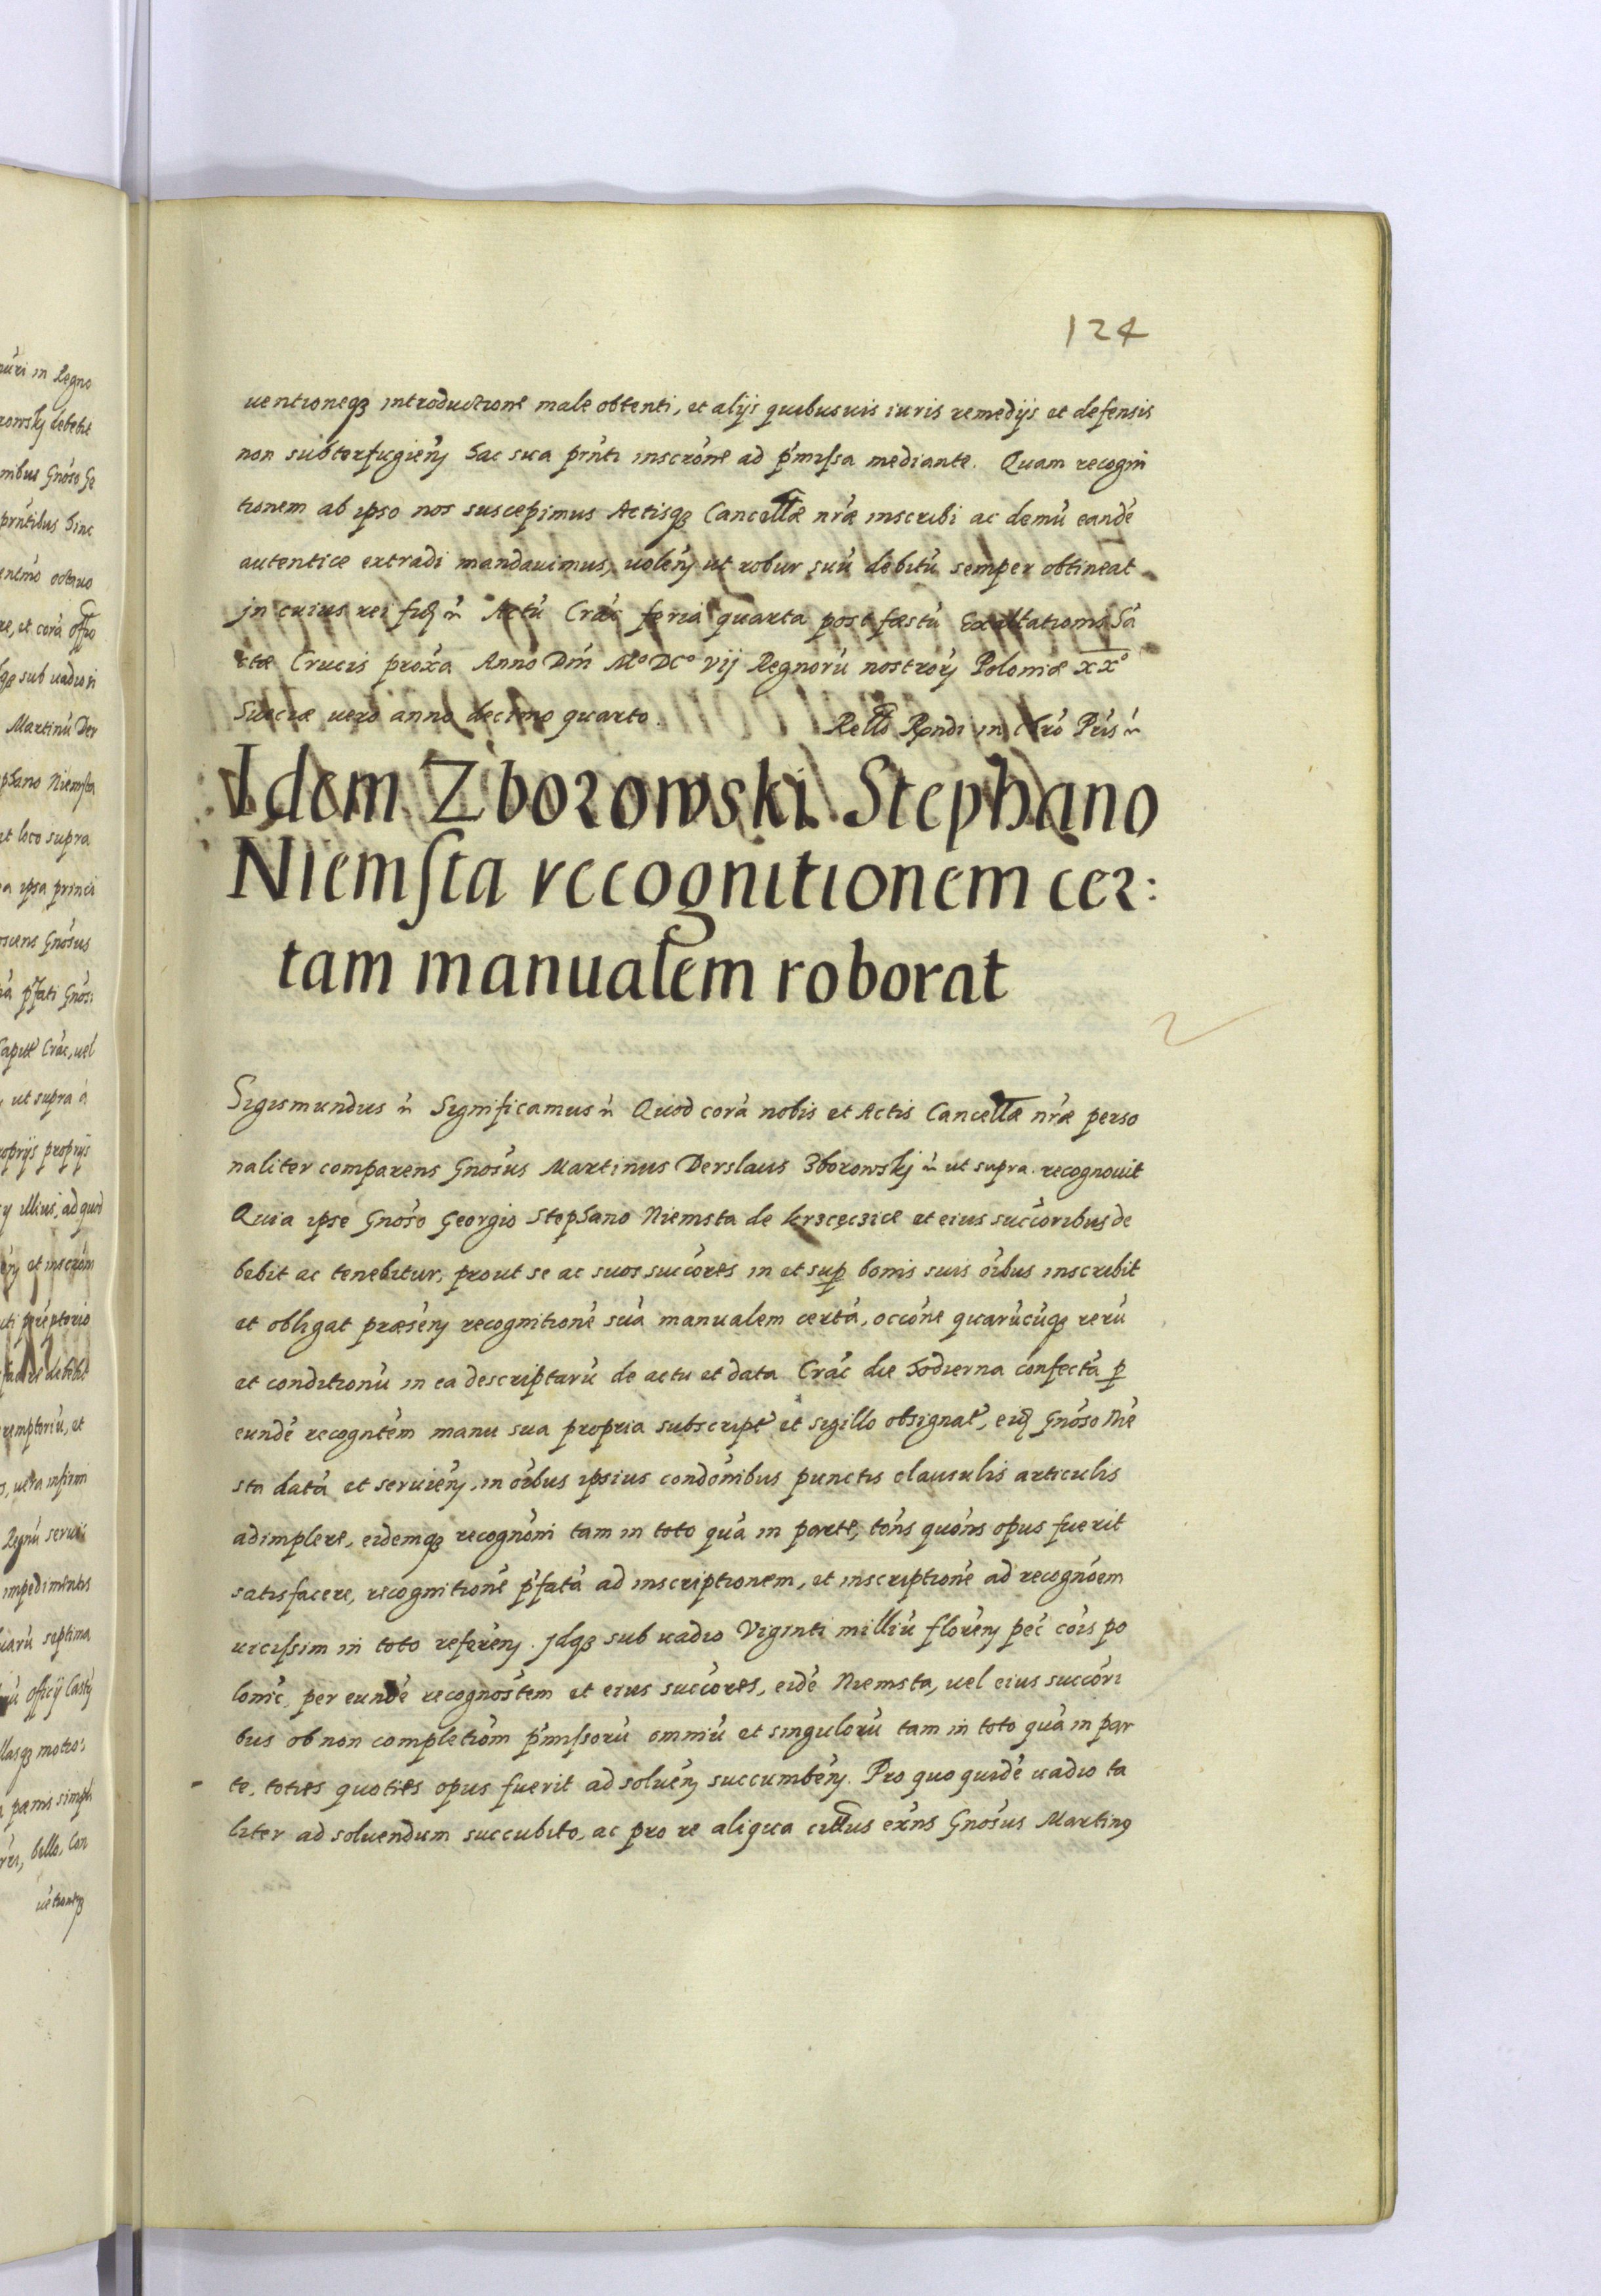 124
uentioneqз introductione male obtenti, et alijs quibusuis iuris remedijs et defensis
non subterfugien̄ hac sua pñti inscrōne ad p̄missa mediante. Quam recogni
tionem ab ipso nos suscepimus Actisqз Cancellæ nr̄æ inscribi ac demū eandē
autentice extradi mandauimus, uolen̄ ut robur suū debitū semper obtineat
jn cuius rei fid ñ Actū Crac̄ feria quarta post fæstū Exaltationis Sā
ctæ Crucis proxa Anno Dm̄ Mº DCº vij Regnorū nostrorū Poloniæ XXº
Sueciæ uero anno decimo quarto. Rello Rṇdi in Chrō Pr̄is ñ
Idem Zborowski Stephano
Niemsta recognitionem cer:
tam manualem roborat
Sigismundus ñ Significamus ñ Quod corā nobis et Actis Cancellæ nr̄æ perso
naliter comparens Gnōsus Martinus Derslaus Zborowskj ñ ut supra recognouit
Quia ipse Gnōso Georgio Stephano Niemsta de krzcęczice et eius succoribus de
bebit ac tenebitur, prout se ac suos succōres in et sup bonis suis oībus inscribit
et obligat præsēn recognitionē suā manualem certā, occōne quarūcūqз rerū
et conditionū in ea descriptarū de actu et data Crac̄ die hodierna confectā p
eundē recognt̄em manu sua propria subscript̄ et sigillo obsignat̄, eid Gnōso Niē
sta datā et seruien̄, in oībus ipsius condōnibus punctis clausulis articulis
adimplere, eidemqз recognōni tam in toto quā in parte, tōns quōns opus fuerit
satisfacere, recognitionē p̄fatā ad inscriptionem, et inscriptionē ad recognōem
uicissim in toto referēn. jdqз sub uadio Viginti milliū florēn pec̄ cōis po
lonic̄, per eundē recognōstem et eius succōres, eidē Niemsta, uel eius succōri
bus ob non completiōm p̄missorū omniū et singulorū tam in toto quā in par
te, toties quoties opus fuerit ad soluēn succumbēn. Pro quo quidē uadio ta
liter ad soluendum succubito, ac pro re aliqua citus exn̄s Gnōsus Martinꝰ